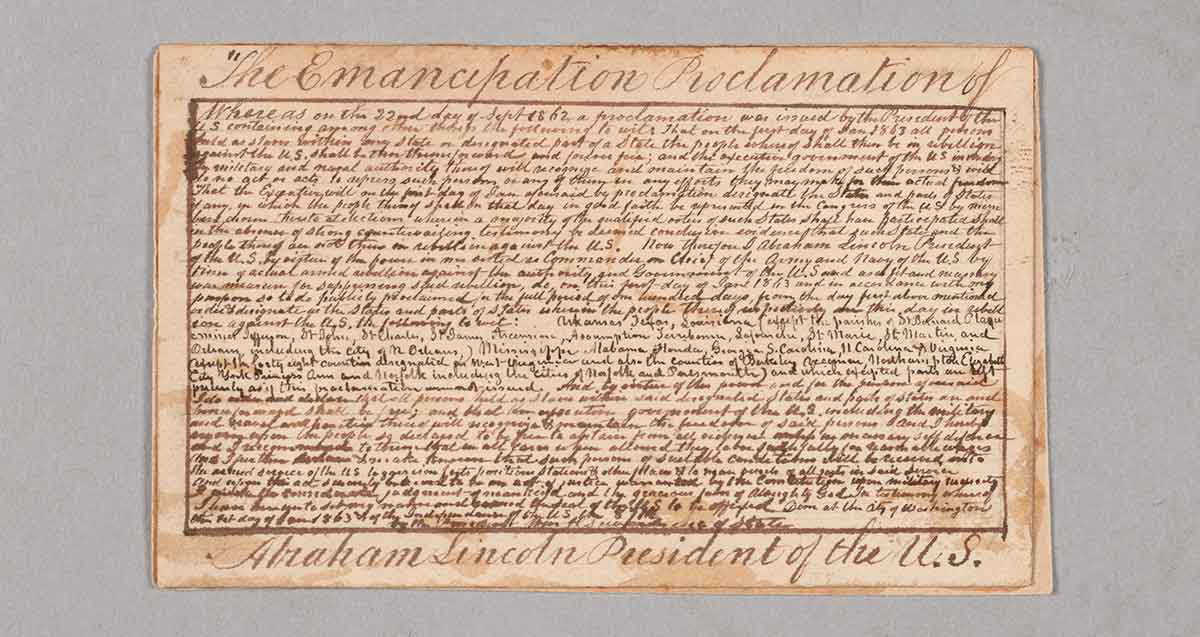 "The Emancipation Proclamation of
Whereas on the 22nd day of Sept 1862 a proclamation was issued by the President of the
U.S. containing among other things the following to wit: That on the first day of Jan 1863 all persons
held as slaves within any State or designated part of a State the people whereof shall then be in rebellion
against the U.S. shall be then thenceforward and forever free; and the executive government of the U.S. including
military and naval authority thereof will recognize and maintain the freedom of such persons & will
do no act or acts to repress such persons or any of them in any efforts they may make for their actual freedom
That the Executive will on the first day of Jan aforesaid by proclamation designate the States and parts of States
if any, in which the people thereof shall on that day in good faith be represented in the Congress of the U.S. by mem
bers chosen thereto at elections wherein a majority of the qualified voters of such States shall have participated shall
in the absence of strong countervailing testimony be deemed conclusive evidence that such State and the
people thereof are not then in rebellion against the U.S. Now therefore I Abraham Lincoln President
of the U.S. by virtue of the power in me vested as Commander in Chief of the Army and Navy of the U.S. in
time of actual armed rebellion against the authority and Government of the U.S. and as a fit and necessary
war measure for suppressing said rebellion, do, on this first day of Jan 1863 and in accordance with my
purpose so to do publicly proclaimed for the full period of one hundred days, from the day first above mentioned
order & designate as the States and parts of States wherein the people thereof respectively are this day in rebell
ion against the U.S. the following to wit: Arkansas Texas, Louisiana (except the parishes of St Bernard Plaqu
emines Jefferson, St John, St Charles, St James, Ascension, Assumption Terrebonne, Lafourche, St Marie, St Martin and
Orleans, including the City of N Orleans,) Mississippi Alabama Florida, Georgia S. Carolina, N Carolina & Virginia
(except the forty eight counties designated as West Virginia and also the counties of Berkeley Accomac, Northampton Elizabeth
City York Princess Ann and Norfolk including the Cities of Norfolk and Portsmouth) and which excepted parts are left
precisely as if this proclamation were not issued. And by virtue of the power and for the purpose aforesaid
I do order and declare that all persons held as slaves within said designated States and parts of States are and
henceforward shall be free; and that the executive government of the U.S. including the military
and naval authorities thereof will recognize & maintain the freedom of said persons And I hereby
enjoin upon the people so declared to be free to abstain from all violence unless in necessary self defence
and I recommend to them that in all cases when allowed they labor faithfully for reasonable wages
And I further declare & make known that such persons of suitable condition will be received into
the armed service of the U.S. to garrison forts positions stations & other places & to man vessels of all sorts in said service
And upon this act sincerely believed to be an act of justice warranted by the Constitution upon military necessity
I invoke the considerate judgment of mankind and the gracious favor of Almighty God In testimony whereof
I have hereunto set my name and caused the seal of the U.S. to be affixed Done at the City of Washington
this 1st day of Jan 1863 & of the Independence of the U.S. the 87th
Abraham Lincoln President of the U.S.